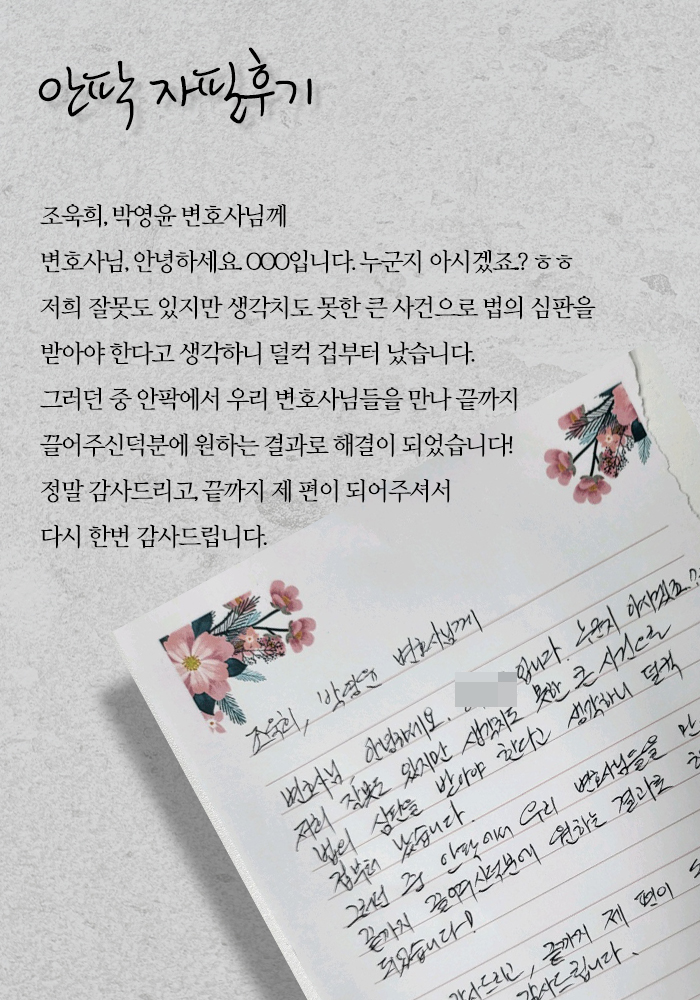 안팍 자필후기
조욱희, 박영윤 변호사님께
변호사님, 안녕하세요. OOO입니다. 누군지 아시겠죠..? ㅎㅎ
저희 잘못도 있지만 생각치도 못한 큰 사건으로 법의 심판을
받아야 한다고 생각하니 덜컥 겁부터 났습니다.
그러던 중 안팍에서 우리 변호사님들을 만나 끝까지
끌어주신덕분에 원하는 결과로 해결이 되었습니다!
정말 감사드리고, 끝까지 제 편이 되어주셔서
다시 한번 감사드립니다.
조욱희, 박영윤 변호사님께
변호사님, 안녕하세요. 입니다. 누군지 아시겠죠..?
저희 잘못도 있지만 생각치도 못한 큰 사건으로
법의 심판을 받아야 한다고 생각하니 덜컥
겁부터 났습니다.
그러던 중 안팍에서 우리 변호사님들을 만
끝까지 끌어주신덕분에 원하는 결과로
되었습니다!
감사드리고, 끝까지 제 편이
감사드립니다.